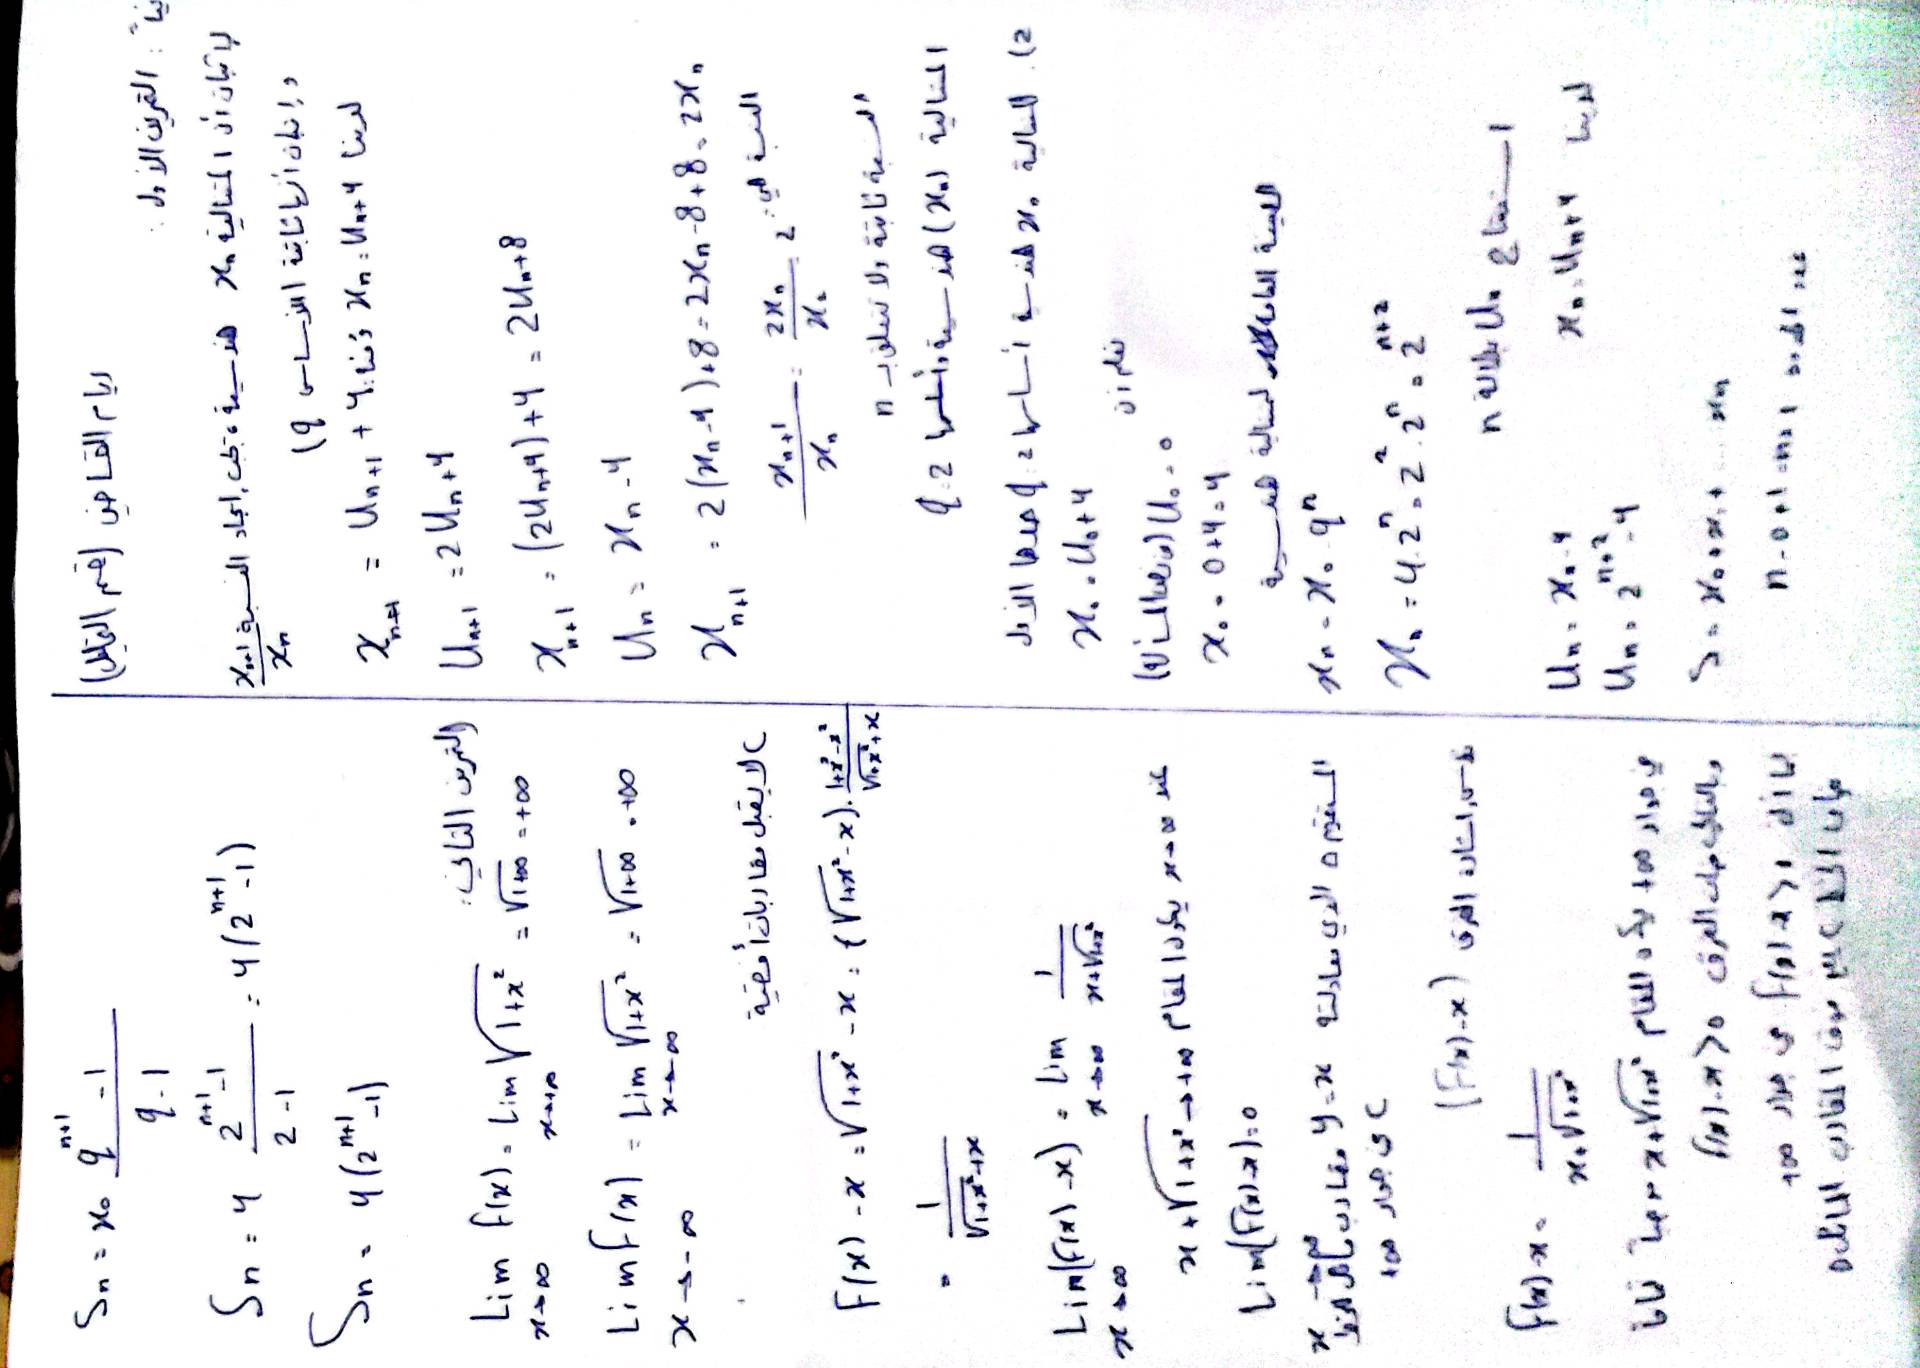 ثانياً: التمرين الأول:
رياض القاضي (قسم التحليل)
لإثبات أن المتتالية xₙ هندسية يجب إيجاد النسبة xₙ₊₁/xₙ
وإثبات أنها ثابتة الأساس q)
لدينا xₙ = Uₙ + 4 ومنه
xₙ₊₁ = Uₙ₊₁ + 4
Uₙ₊₁ = 2Uₙ + 4
xₙ₊₁ = (2Uₙ + 4) + 4 = 2Uₙ + 8
Uₙ = xₙ - 4
xₙ₊₁ = 2(xₙ - 4) + 8 = 2xₙ - 8 + 8 = 2xₙ
النسبة هي: xₙ₊₁/xₙ = 2xₙ/xₙ = 2
النسبة ثابتة ولا تتعلق بـ n
المتتالية (xₙ) هندسية وأساسها q = 2
2). المتتالية xₙ هندسية أساسها q = 2 وحدها الأول
x₀ = U₀ + 4
نعلم أن U₀ = 0 (من نص السؤال)
x₀ = 0 + 4 = 4
الصيغة العامة لمتتالية هندسية
xₙ = x₀ . qⁿ
xₙ = 4 . 2ⁿ = 2² . 2ⁿ = 2ⁿ⁺²
استنتاج Uₙ بدلالة n
لدينا xₙ = Uₙ + 4
Uₙ = xₙ - 4
Uₙ = 2ⁿ⁺² - 4
S = x₀ + x₁ + ... xₙ
عدد الحدود n - 0 + 1 = n + 1
Sₙ = x₀ (qⁿ⁺¹ - 1)/(q - 1)
Sₙ = 4 (2ⁿ⁺¹ - 1)/(2 - 1) = 4(2ⁿ⁺¹ - 1)
Sₙ = 4(2ⁿ⁺¹ - 1)
التمرين الثاني:
Lim f(x) = Lim √(1+x²) = √(1+∞) = +∞
x→∞ x→+∞
Lim f(x) = Lim √(1+x²) = √(1+∞) = +∞
x→-∞ x→-∞
C لا يقبل مقاربات أفقية
f(x) - x = √(1+x²) - x = (√(1+x²) - x). (1+x²-x²)/(√(1+x²)+x)
= 1/(√(1+x²)+x)
Lim(f(x) - x) = Lim 1/(x+√(1+x²))
x→∞ x→∞
عند x→∞ يكون المقام x+√(1+x²)→+∞
Lim(f(x)-x) = 0
x→∞
المستقيم الذي معادلته y = x مقارب مائل للخط
C في جوار +∞
ندرس إشارة الفرق (f(x)-x)
f(x)-x = 1/(x+√(1+x²))
في جوار +∞ يكون المقام x+√(1+x²) موجباً تماماً
وبالتالي فإن الفرق f(x)-x>0
بما أن f(x)>x في جوار +∞
فإن الخط C يقع فوق المقارب المائل